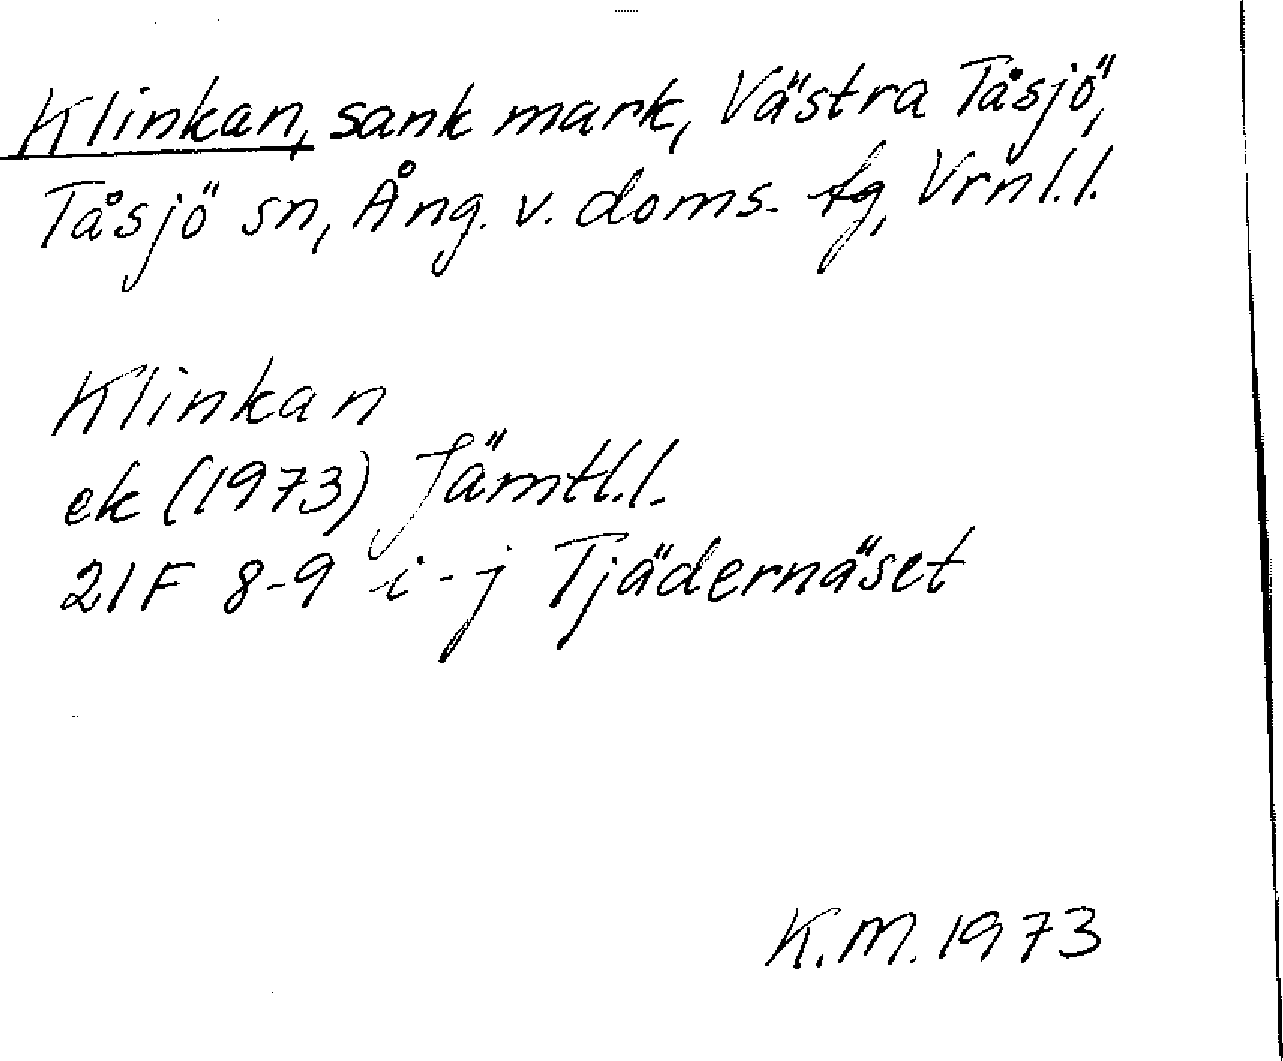 Klinkan, sank mark, Västra Tåsjö,
Tåsjö sn, Ång. v. doms. tg, Vrnl.l.
Klinkan
ek (1973) Jämtl.l.
21F 8-9 i-j Tjädernäset
K.M. 1973